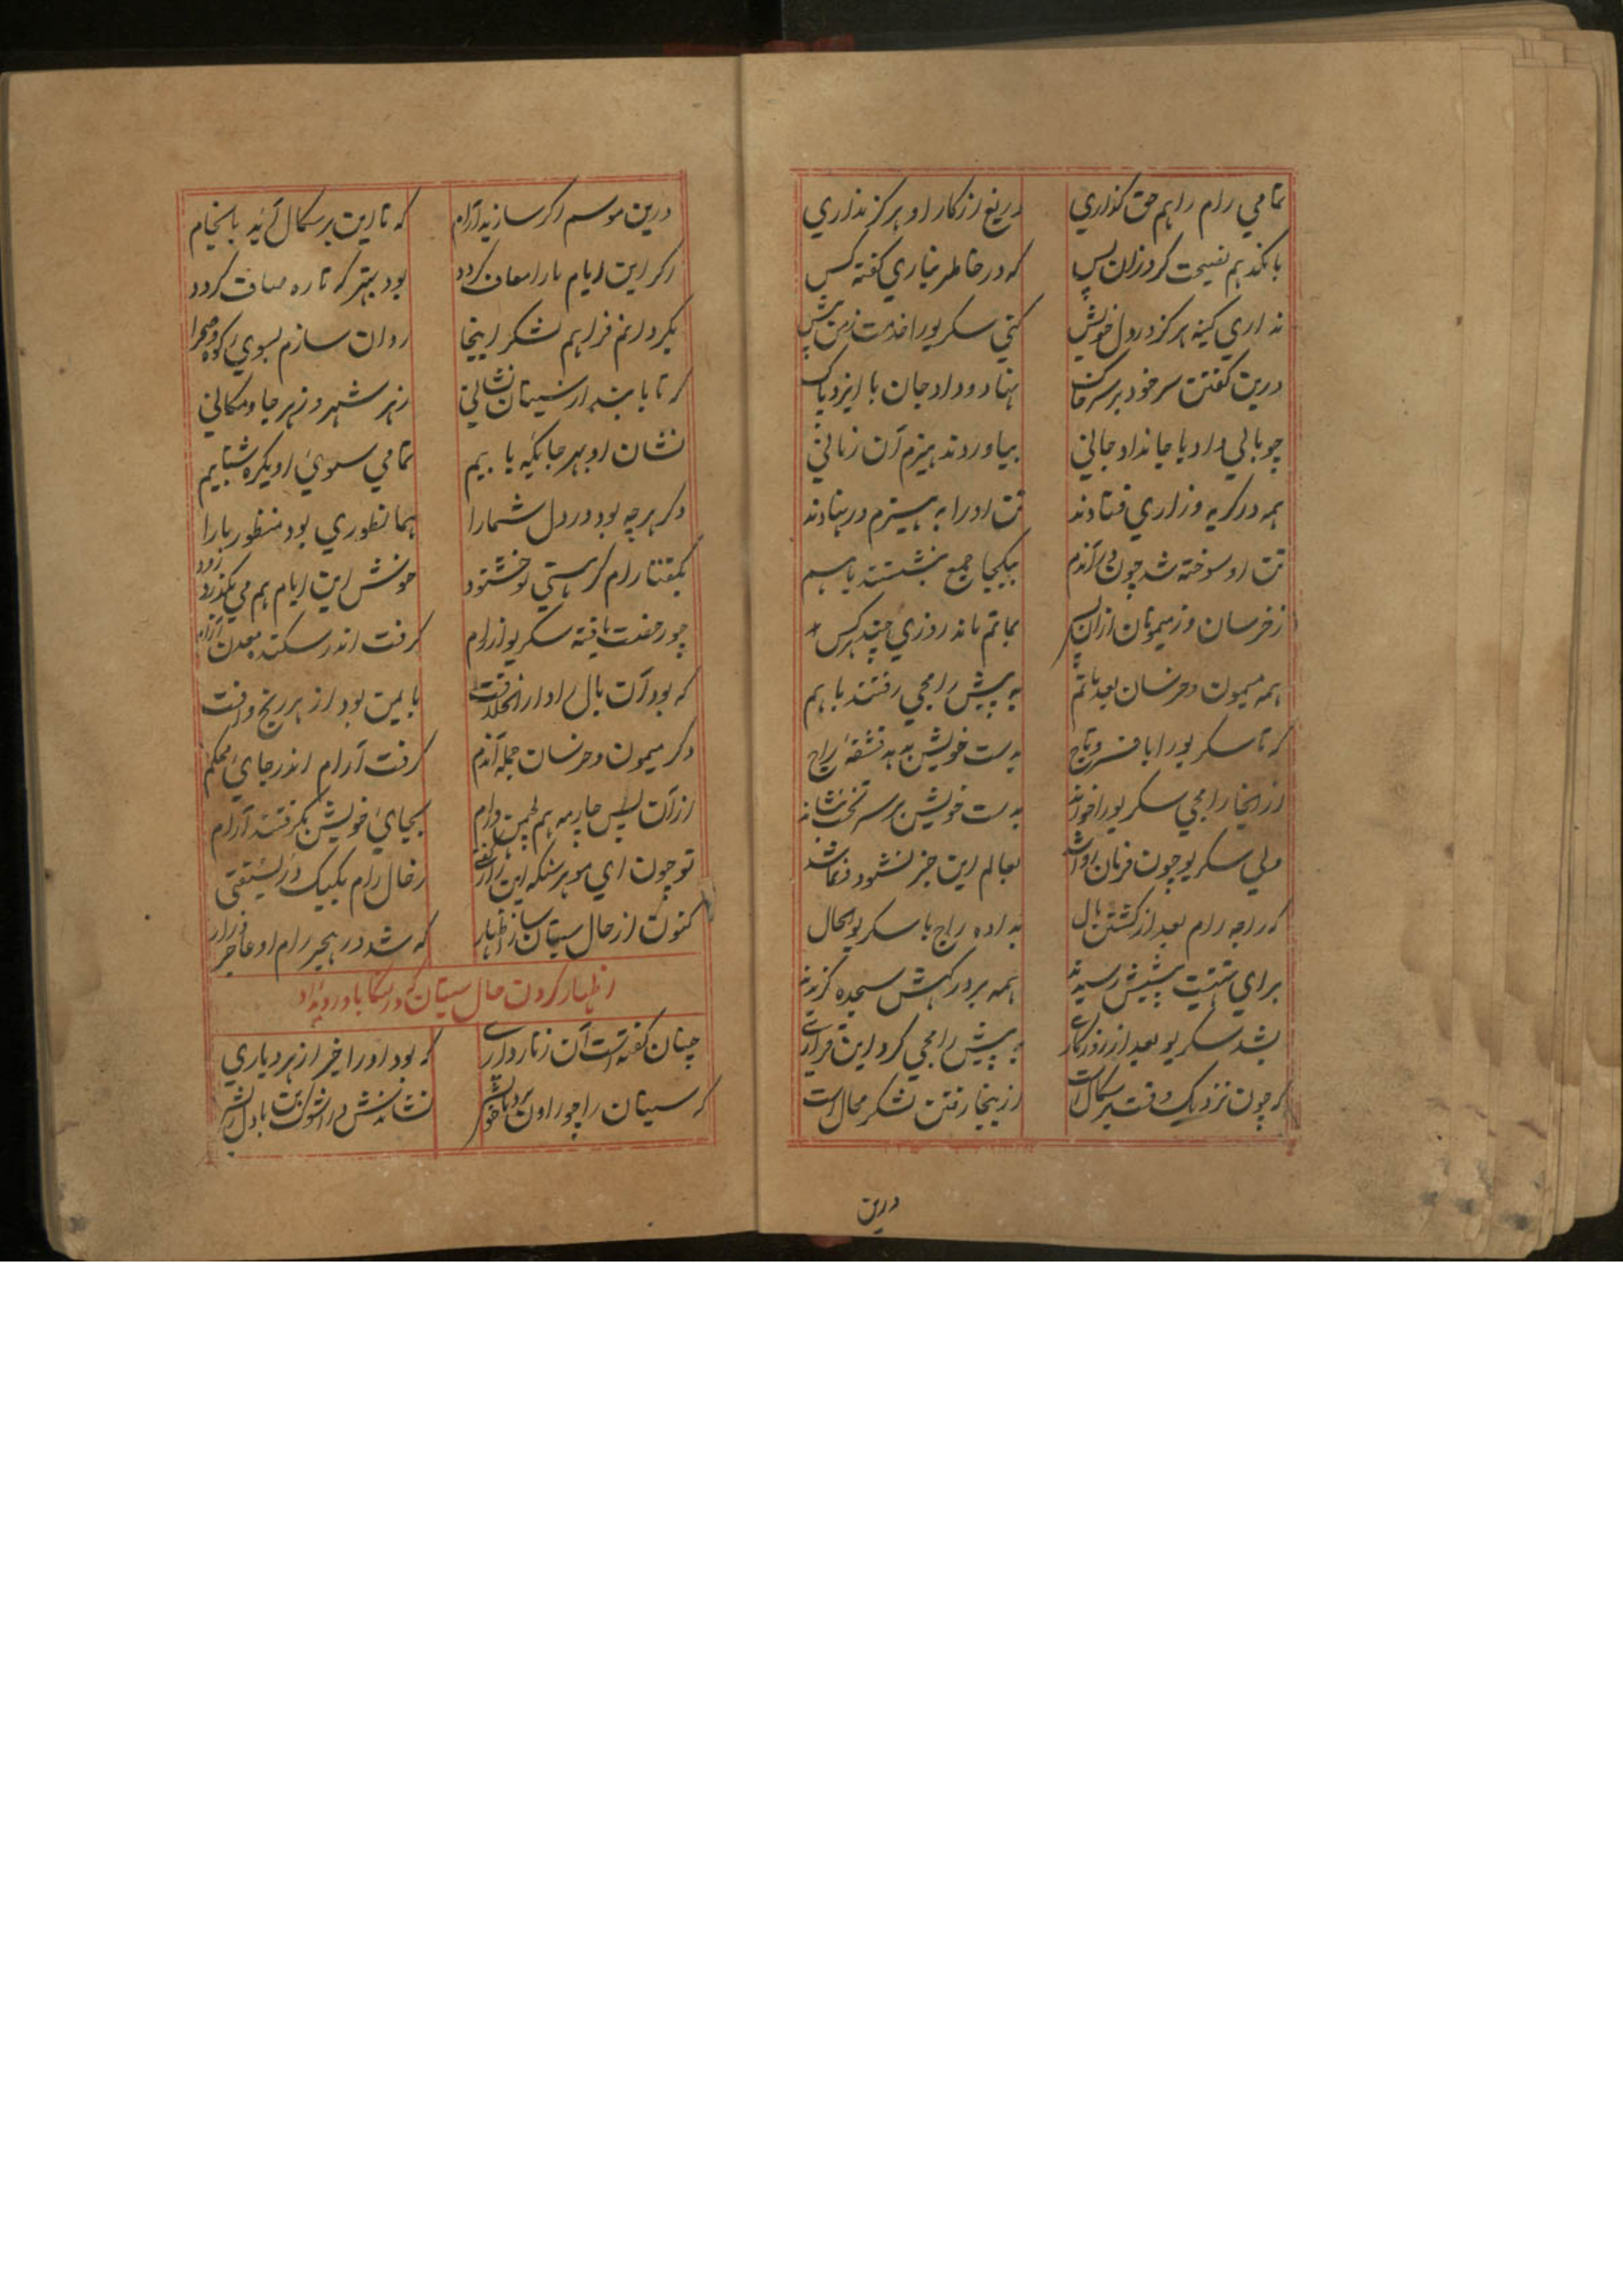 تمامي رام را هم حق گذاري دریغ از کار او هرگز نداري
بانکد هم نصیحت کرد زان پس که در خاطر نیاري گفته کس
نداري کینه هرگز در دل خویش کني سکریو را خدمت زمن پیش
درین گفتن سر خود بر سر خاک نهاد و داد جان با ایزد پاک
چو بالي داد با جاندار جاني بیاوردند هیزم آن زماني
همه در گریه و زاري فتادند تن او را به هیزم در نهادند
تن او سوخته شد چون در آندم بیکجا جمع بنشستند باهم
ز خرسان و ز میمونان از آن پس بماتم ماند روزي چند هر کس
همه میمون و خرسان بعد ماتم به پیش رامجي رفتند باهم
که تا سکریو را با افسر و تاج بدست خویش بدهد قشقهٔ راج
از اینجا رامجي سکریو را خواند بدست خویش بر سر تخت بنشاند
ولي سکریو چون فرمان روا شد بعالم این خبر نشنود
که راجه رام بعد از کشتن بال بداده راج با سکریو الحال
براي تهنیت پیشش رسیدند همه بر درگهش سجده گزیدند
بشد سکریو بعد از روزگاري به پیش رامجي کرد این قراري
که چون نزدیک وقت برسکال است ازینجا رفتن لشکر محال است
درین
درین موسم اگر سازید آرام که تا این برسکال آید بانجام
اگر این ایام ما را معاف گردد بود بهتر که تا ره صاف گردد
بگردانم فراهم لشکر اینجا روان سازم بسوي کوه و صحرا
که تا یابند از سیتان نشاني ز هر شهر و ز هر جا و مکاني
نشان او بهر جائیکه یابیم تمامي سوي او یکره شتابیم
دگر هرچه بود در دل شما را همانطوري بود منظور ما را
بگفتا رام گر هستي تو خشنود خوش این ایام هم مي بگذرد زود
چو رخصت یافته سکریو از رام گرفت اندر سکند معدن آرام
که بود آن بال را دارالخلافت بایمن بود از هر رنج و آفت
دگر میمون و خرسان جمله آندم گرفت آرام اندر جاي محکم
از آن پس چارمه هم لچمن و رام بجاي خویش بگرفتند آرام
تو چون اي موهر سنکه این راز گفتي ز حال رام یکیک در سفتي
کنون از حال سیتان ساز اظهار که شد در هجر رام او عاجز و زار
اظهار کردن حال سیتان که در لنکا با او رویداد
چنان گفته است آن زناردارے که بود او را خبر از هر دیاري
که سیتان را چو راون برد نشاندش در اشوک بن با دل ریش